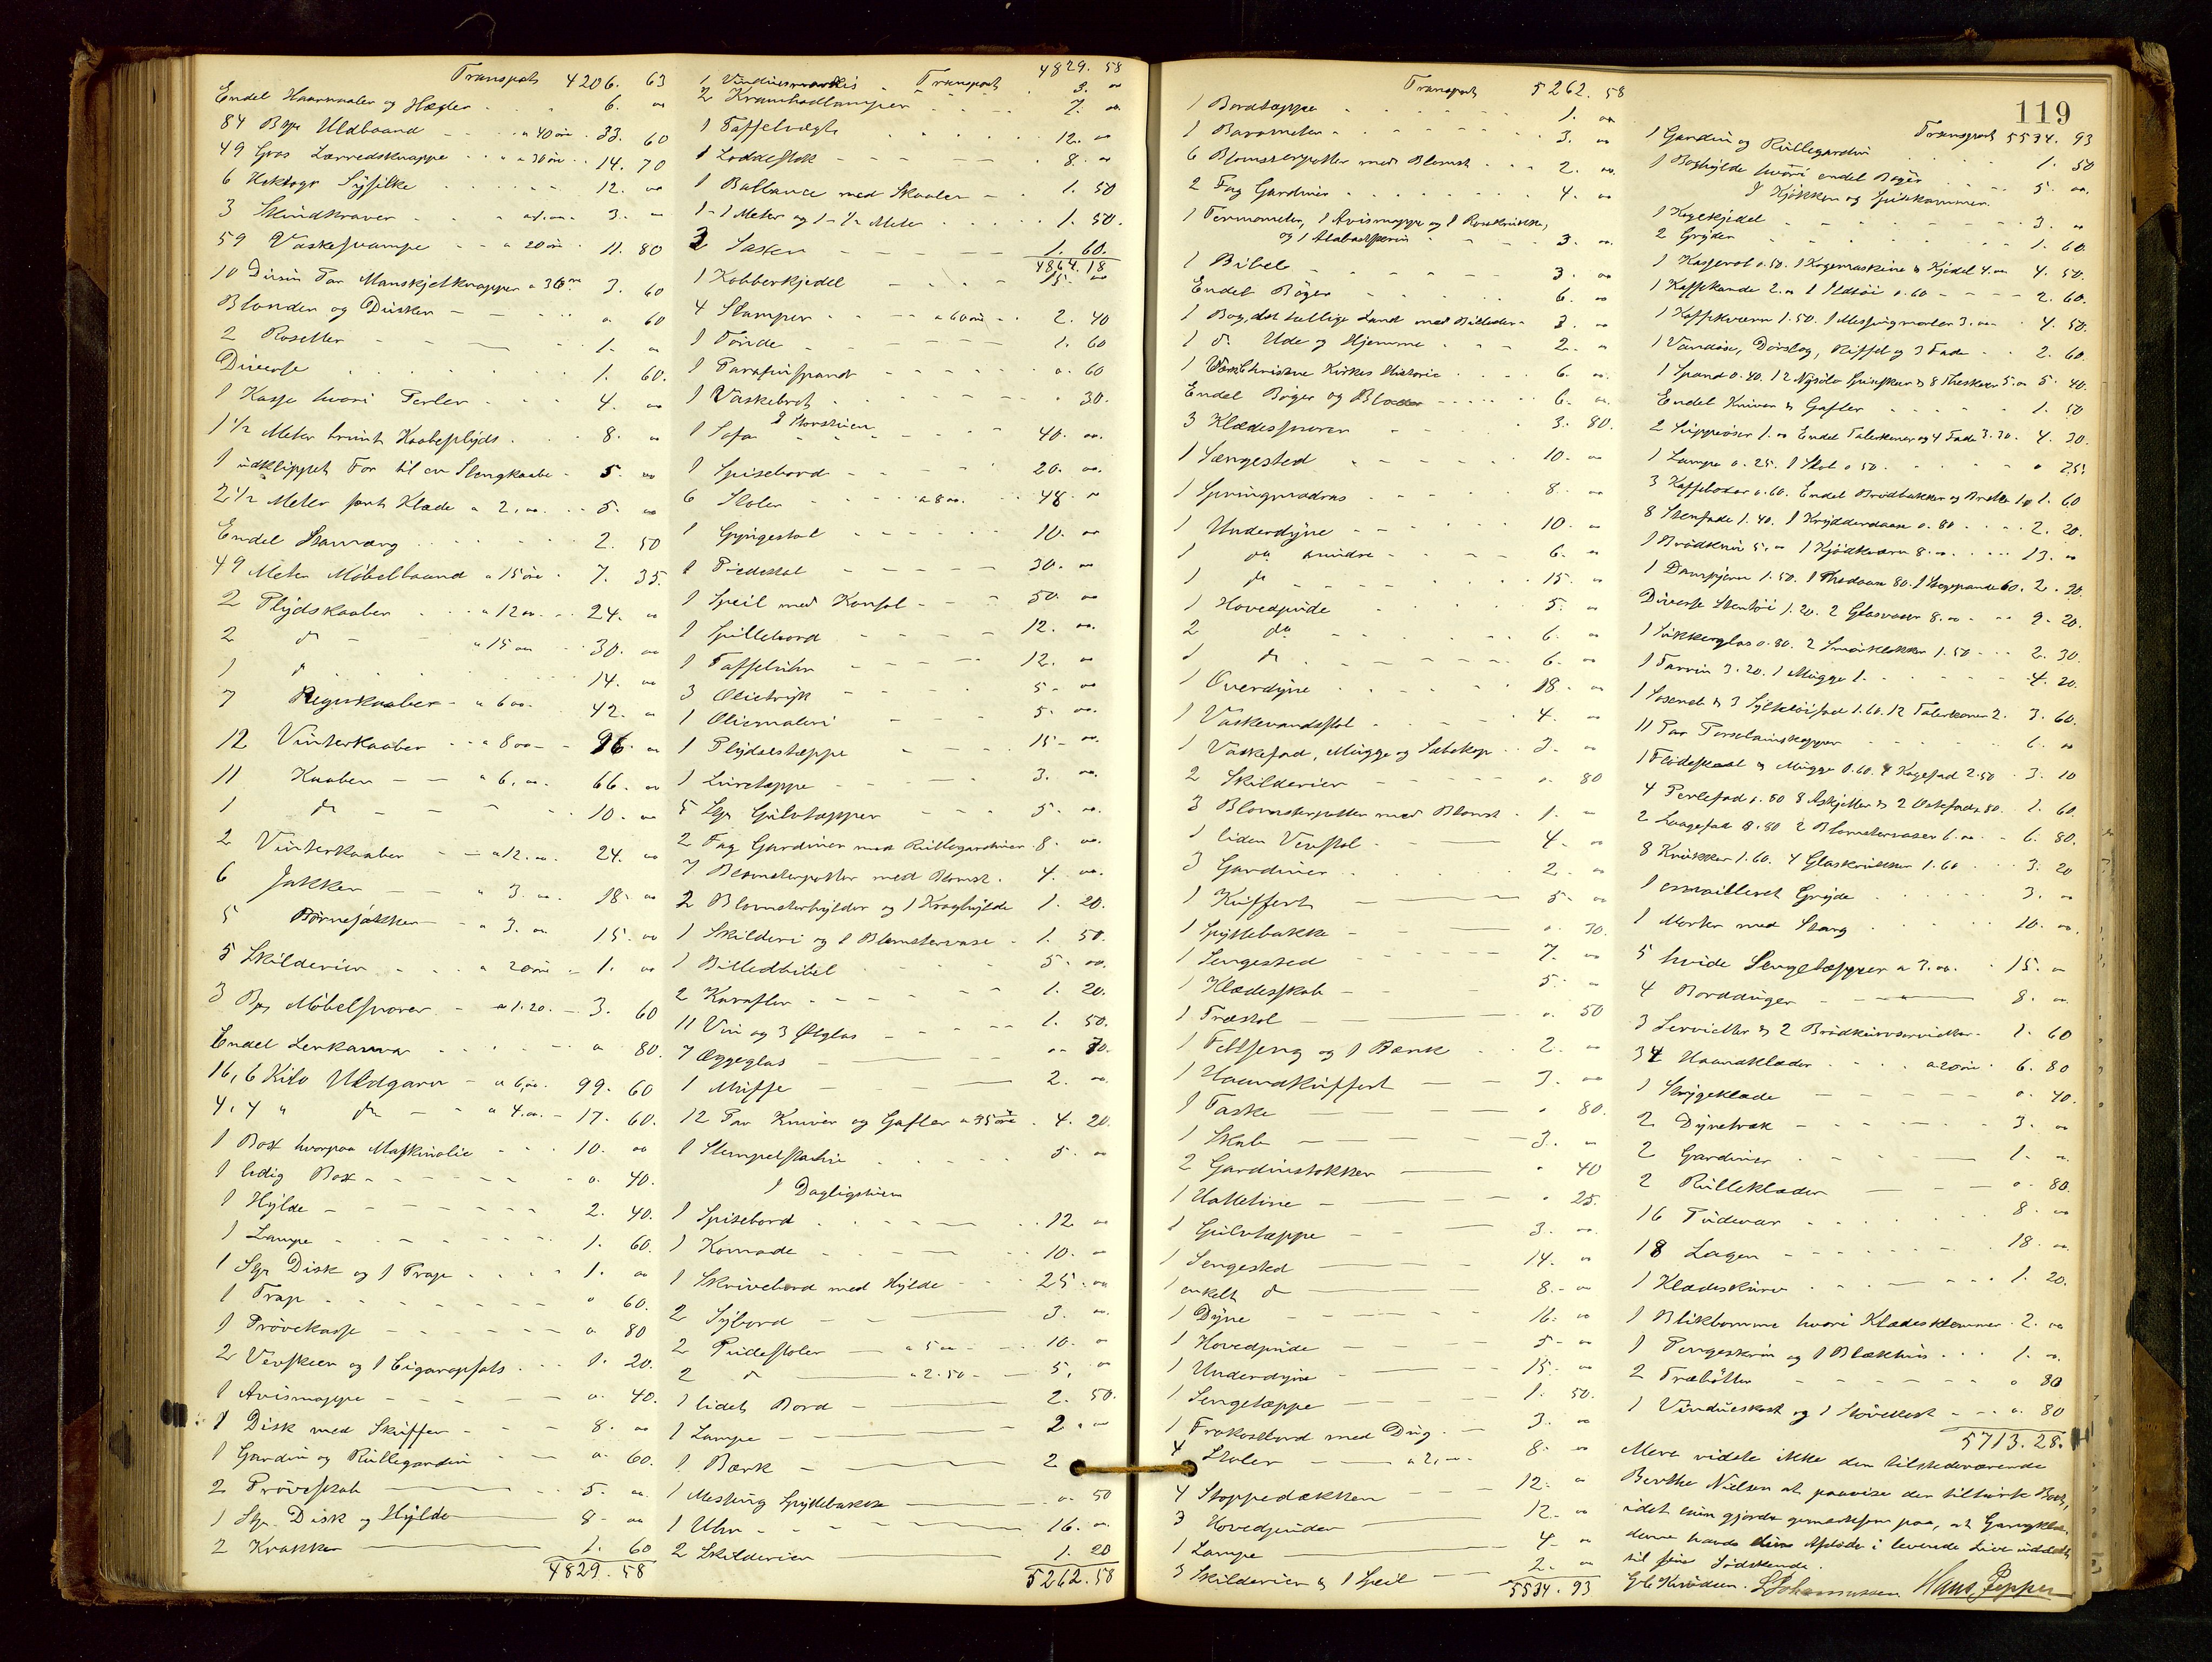 Transport 4206. 63
Endel Haarnaaler og Hægter 6. "
84 Bge Uldbaand a 40 øre 33. 60
49 Gros Lærredsknappe a 30 øre 14. 70
6 Sysilke 12. "
3 Skindkraver a 1. " 3. "
59 Vaskesvampe a 20 øre 11. 80
10 Dusin Par Manskjetknapper a 36 øre 3. 60
Blonder og Dusker " 60
2 Rosetter 1. "
Diverse 1. 60.
1 Kasse hvori Perler 4. "
1 1/2 Meter brunt Kaabeplyds 8. "
1 udklippet For til en Slengkaabe 5. "
2 1/2 Meter sort Klæde a 2,00 5. "
Endel 2. 50
49 Meter Møbelbaand a 15 øre 7. 35.
2 Plydskaaber a 12 " 24. "
2 do a 15 " 30. "
1 do 14. "
7 Regnkaaber a 6 " 42. "
12 Vinterkaaber a 8 " 96. "
11 Kaaber a 6, " 66. "
1 do 10. "
2 Vinterkaaber a 12. " 24. "
6 Jakker a 3. " 18. "
5 Børnejakker a 3. " 15. "
5 Skilderier a 20 øre 1. "
3 Bge Møbelsnorer a 1.20. 3. 60
Endel " 80.
16,6 Kilo Uldgarn a 6,00. 99. 60
4,4 " do a 4. " 17. 60.
1 Box hvorpaa Maskinolie 10. "
1 ledig Box 0. 40.
1 Hylde 2. 40.
1 Lampe 1. 60.
1 Stk Disk og 1 Trap 1. "
1 Trap 0 60.
1 Prøvekasse 0. 80
2 og 1 Cigaropsats 1. 20.
1 Avismappe 0. 40.
1 Disk med Skuffer 8. "
1 Gardin og Rullegardin 0. 60.
2 Prøveskab 5. "
1 Stk. Disk og Hylde 8. "
2 Krakker 1. 60
4829. 58
Transport 4829. 58
1 Vinduesmarkis 3. "
2 Krambodlamper 7. "
1 Taffelvægt 12. "
1 Loddestok 8. "
1 Ballance med Skaaler 1. 50
1-1 Meter og 1-1/2 Meter 1. 50.
3 1. 60.
4864.18
1 Kobberkjedel 15. "
4 Stamper a 60 øre 2. 40
1 Tønde 1. 60
1 Parafinspand 0. 60
1 Vaskebret . 30.
I Storstuen
1 Sofa 40. "
1 Spisebord 20. "
6 Stoler a 8 " 48. "
1 Gyngestol 10. "
1 Piedestal 30. "
1 Speil med Konsol 50. "
1 Spillebord 12. "
1 Taffeluhr 12. "
3 Olietryk 5. "
1 Oliemaleri 5. "
1 Plydsestæppe 15. "
1 3. "
5 Stk Gulvtæpper 5. "
2 Fag Gardiner med Rullegardiner 8. "
7 Blomsterpotter med Blomst. 4. "
2 Blomsterhylder og 1 Kraghylde 1. 20.
1 Skilderi og 1 Blomstervase 1. 50.
1 Billedbibel 5. "
2 Karafler 1. 20.
11 Vin og 3 Ølglas 1. 50.
7 Æggeglas " 70.
1 Muffe 2. "
12 Par Kniver og Gafler a 35 øre 4. 20.
1 5. "
I Dagligstuen
1 Spisebord 12 "
1 Komode 10. "
1 Skrivebord med Hylde 25. "
2 Sybord 3. "
2 Pudestoler a 5 " 10. "
2 do a 2.50 5. "
1 lidet Bord 2. 50.
1 Lampe 2. "
1 Bænk 2
1 Messing Spyttebakke 0. 50
1 Uhr 16. "
2 Skilderier 1. 20
5262.58
Transport 5262. 58
1 Bordtæppe 1. "
1 Barometer 3. "
6 Blomsterpotter med Blomst 2. "
2 Fag Gardiner 4. "
1 Termometer, 1 Avismappe og 1
og 1 3. "
1 Bibel 3. "
Endel Bøger 6. "
1 Bog, det hellige Land med Billeder 3. "
1 do. Ude og Hjemme 2. "
1 Kirkes Historie 6. "
Endel Bøger og Blader 6. "
3 Klædessnorer 3. 80.
1 Sængested 10. "
1 Springmadras 8. "
1 Underdyne 10. "
1 do mindre 6. "
1 do 15. "
1 Hovedpude 5. "
2 do 6. "
1 do 6. "
1 Overdyne 18. "
1 Vaskevandsstol 4. "
1 Vaskefad, Mugge og Sæbekop 3. "
2 Skilderier 0. 80
3 Blomsterpotter med Blomst 1. "
1 liden 4. "
3 Gardiner 2. "
1 Kuffert 5. "
1 Spyttebakke 0. 30.
1 Sengested 7. "
1 Klædesskab 5. "
1 Træstol 0. 50
1 Feltseng og 1 Bænk 2. "
1 Haandkuffert 3. "
1 Taske " 80.
1 Skab 3. "
2 Gardinstokker " 40
1 " 25.
1 Gulvtæppe 3. "
1 Sengested 14. "
1 enkelt do 8. "
1 Dyne 16. "
1 Hovedpude 5. "
1 Underdyne 15. "
1 Sengetæppe 1. 50.
1 Frokostbord med Dug. 3. "
4 Stoler a 2, " 8. "
4 Stoppedækken 12. "
3 Hovedpuder 12. "
1 Lampe 4. "
3 Skilderier & 1 Speil 2. "
5534. 93
119
Transport 5534. 93
1 Gardin og Rullegardin 1. 50
1 Boghylde hvori endel Bøger 5. "
I Kjøkken og Spisekammer
1 Kogekjedel 3. "
2 Gryder 1. 60.
1 Kasserol 0.50. 1 Kogemaskine & Kjedel 4. " 4. 50.
1 Kaffekande 2. " 1 Ildtøi 0.60 2. 60.
1 Kaffekværn 1.50. 1 Messingmorter 3. " 4. 50.
1 Vandøse, Dørslag, Riffel og 3 Fade 2. 60.
1 Spand 0.40. 12 Nysølv Spiseskeer & 8 Theskeer 5. " 5. 40.
Endel Kniver & Gafler 1. 50
2 Suppeøser 1. " Endel Talerkener og 4 Fade 3.30. 4. 30.
1 Lampe 0.25. 1 Stol 0 50. 0 75.
3 Kaffeboxer 0.60. Endel Brødbakker og Bretter 1. " 1. 60
8 Stenfade 1.40. 1 Krydderdaase 0.80 2. 20.
1 Brødkniv 5. " 1 Kjødkværn 8. " 13. "
1 Dampjern 1.50. 1 Thedaase 80. 1 60. 2. 90.
Diverse Stentøi 1.20. 2 Glasvaser 8. " 9. 20.
1 Sukkerglas 0.80. 2 Smørklokker 1.50 2. 30.
1 Tarrin 3.20. 1 Mugge 1. 4. 20.
1 & 3 Syltetøifad 1.60. 12 Talerkener 2. 3. 60.
11 Par Porselainskopper 6. "
1 Flødeskaal & Mugge 0.60. 4 Kagefad 2.50 3. 10
4 Perlefad 0.80 8 Askjetter & 2 Ostefad 0.80 1. 60.
2 0.80 2 Blomstervaser 6. " 6. 80.
8 Krukker 1.60. 4 Glaskrukker 1.60 3. 20
1 emailleret Gryde 3. "
1 Morter med Stang 10. "
5 hvide Sengetæpper a 3. " 15. "
4 Bordduger 8. "
3 Servietter & 2 Brødkurvservietter 1. 60
34 Haandklæder a 20 øre 6. 80
1 Strygeklæde 0. 40.
2 Dynetræk 3. "
2 Gardiner 1. "
2 Rulleklæder 0. 80.
16 Pudevar 8. "
18 Lagen 18. "
1 Klædeskurv 1. 20.
1 Blikbomme hvori Klædesklemmer 2. "
1 Pengeskrin og 1 Blækhus 1. "
2 Træbøtter 0 80
1 Vindueskost og 1 Støvekost 0. 80
5713. 28.
Mere vidste ikke den tilstedeværende
Berthe Nielsen at paavise den tilhørte Boet,
idet hun gjorde opmerksom paa, at Gangklæ
derne havde Afdøde i levende Live uddelt
til sine Sødskende.
Knudsen. Johannessen Hans Jepsen